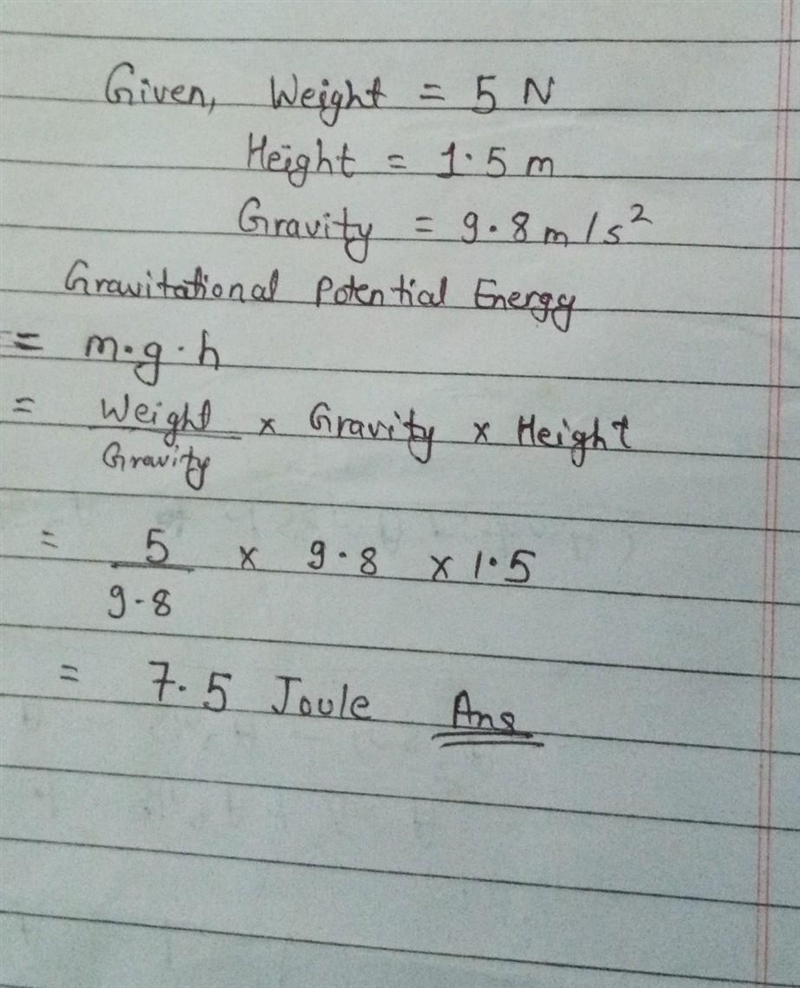 Given, Weight = 5 N
Height = 1.5 m
Gravity = 9.8 m/s²
Gravitational Potential Energy
= m.g.h
= Weight/Gravity × Gravity × Height
= 5/9.8 × 9.8 × 1.5
= 7.5 Joule Ans